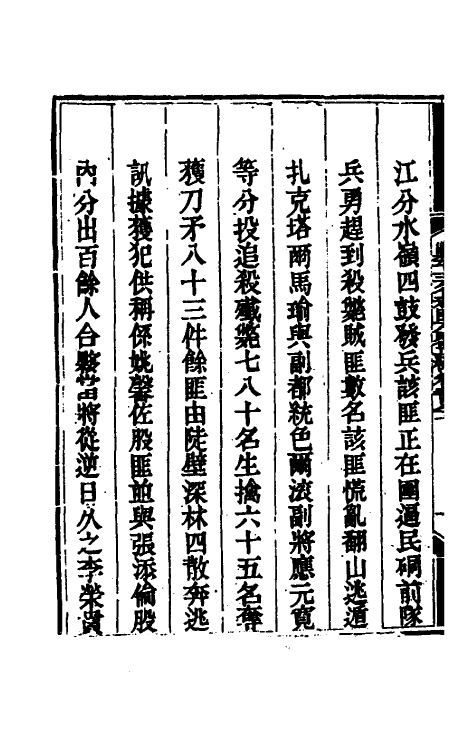 江分水嶺四鼓發兵該匪正在圍逼民硐前隊
兵勇趕到殺斃賊匪數名該匪慌亂翻山逃遁
扎克塔爾馬瑜與副都統色爾滾副將應元寬
等分投追殺殲斃七八十名生擒六十五名奪
獲刀矛八十三件餘匪由陡壁深林四散奔逃
訊據獲犯供稱係姚馨佐股匪並與張添倫股
內分出百餘人合夥當將從逆日久之李榮貴